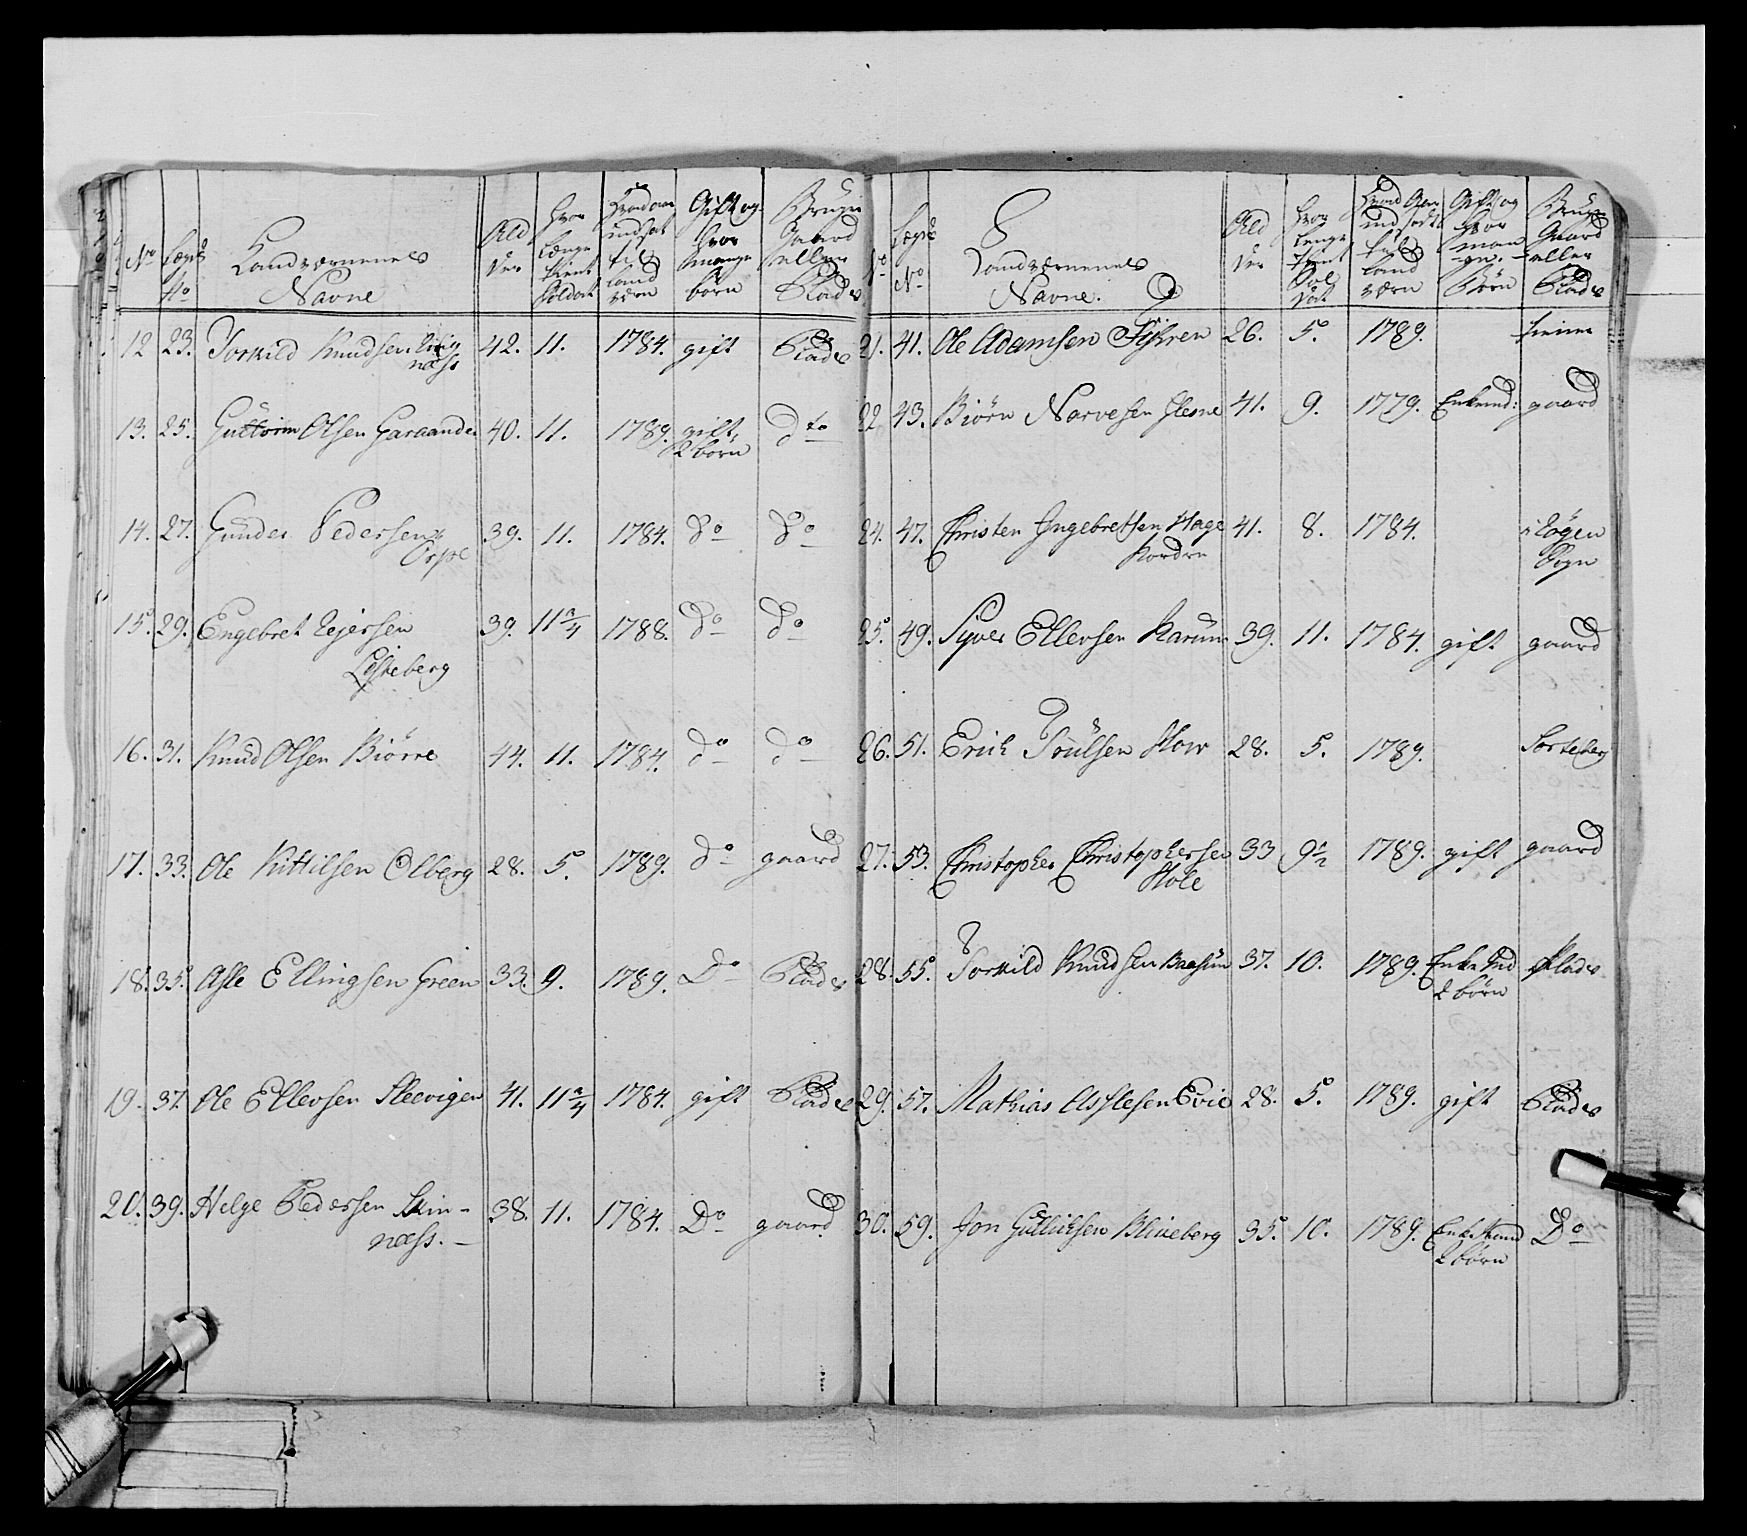 No Lægds No Landværnenes Navne Alder hvor længe tient Soldat hvad aar indsat til land værn Gift og hvor mange börn Bruger Gaard eller Plads
12 23. Torkild Knudsen
næss 42. 11. 1784. gift Plads
13. 25. Guttorm Olsen Garaandes 40. 11. 1789. gift, 2 börn dto
14. 27. Gunder Pedersen
Espe 39. 11. 1784. do do
15. 29. Engebret Eyersen
Leskeberg 39. 11 3/4 1788. do do
16. 31. Knud Olsen Biörre 44. 11. 1784. do do
17. 33. Ole Kittilsen Olberg 28. 5. 1789. do gaard
18. 35. Asle Ellingsen Green 33. 9. 1789. Do Plads
19. 37. Ole Ellevsen Sleevigen 41. 11 3/4 1784. gift Plads
20. 39. Helge Pedersen Skin-
næss. 38. 11. 1784. Do gaard
No Lægds No Landværnenes Navne. Alder hvor længe tient Soldat hvad Aar indsadt til land værn Gift og hvor mange Börn Bruger Gaard eller Plads
21. 41. Ole Adamsen 26. 5. 1789. tiener
22. 43. Biörn Narvesen Glesne 41. 9. 1779. Enkemd: gaard
24. 47. Christen Ingebretsen Hage
Nordre 41. 8. 1784. i
Sogn
25. 49. Syver Ellevsen Karüm 39. 11. 1784. gift gaard
26. 51. Erich Poulsen How 28. 5. 1789. Sorteberg
27. 53. Christopher Christophersen
Hole 33 9 1/2 1789. gift gaard
28. 55. Torkild Knudsen 37. 10. 1789. Enkemd
2 börn Plads
29. 57. Mathias Asslesen Evie 28. 5. 1789. gift Plads
30. 59. Jon Gulliksen Blineberg 35. 10. 1789. Enkemand
2 börn Do